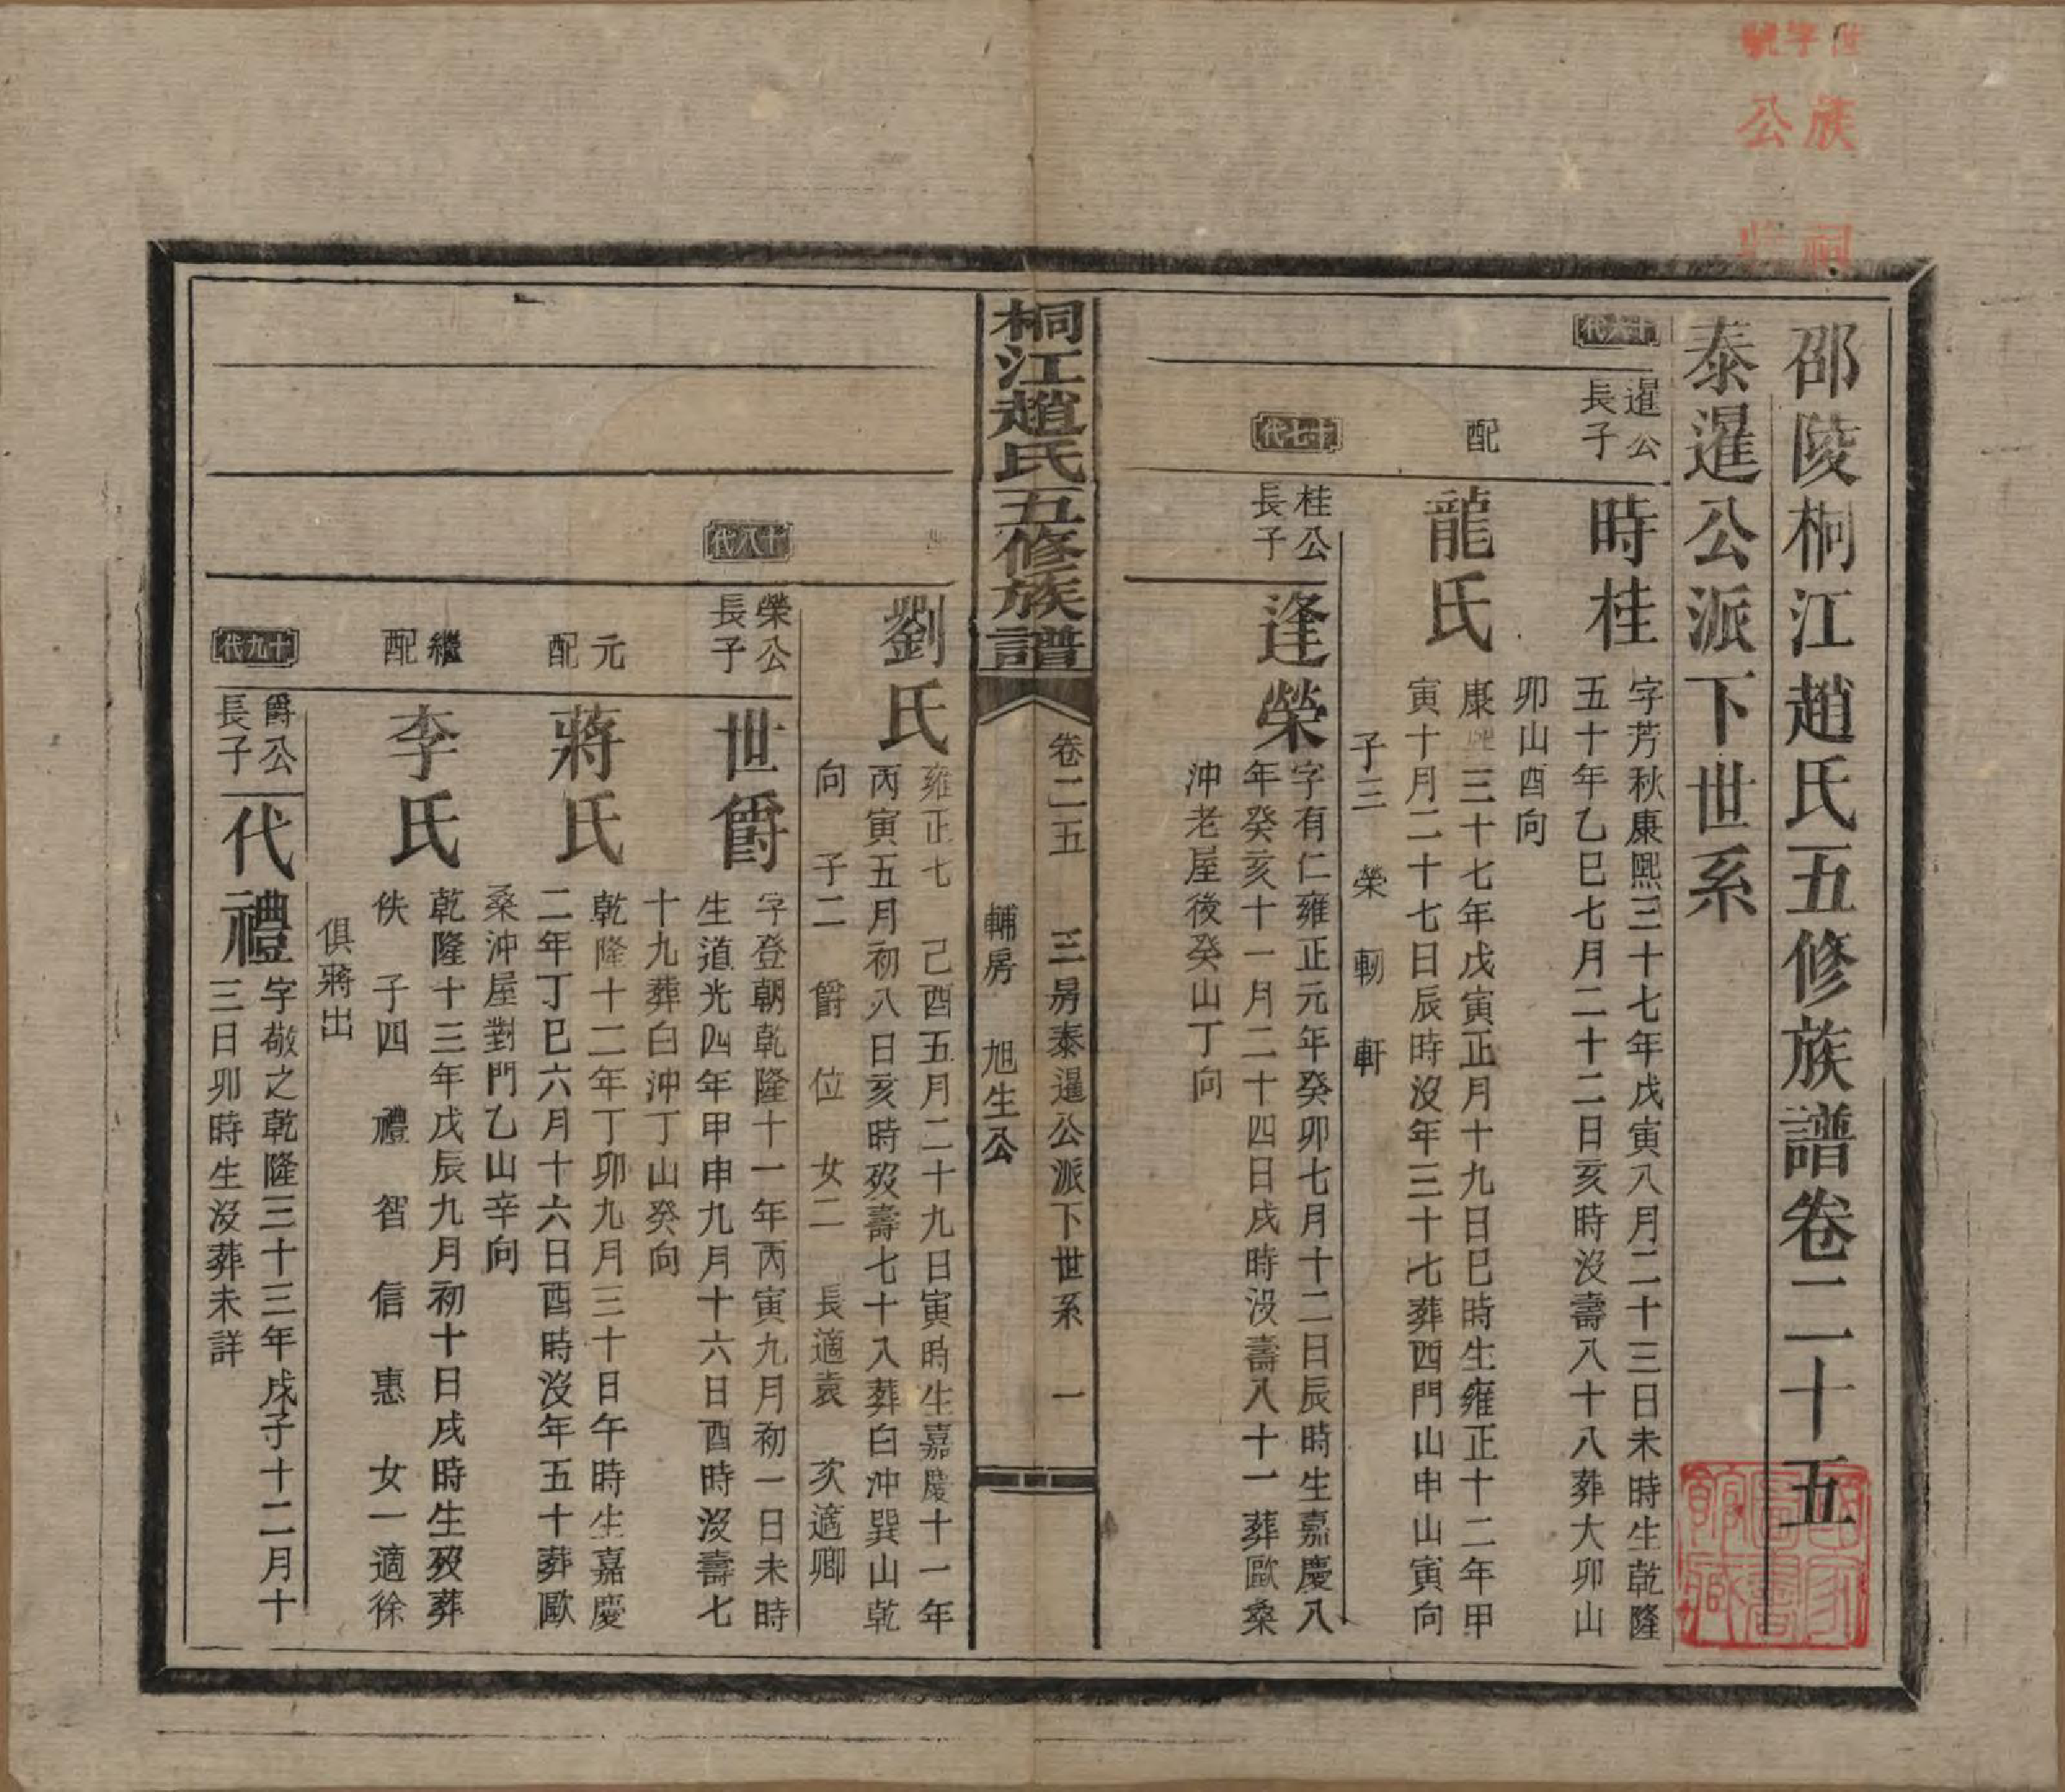 族祠
公
邵陵桐江趙氏五修族譜卷二十五
泰暹公派下世系
十六代
暹公
長子
時桂
字芳秋康熙三十七年戊寅八月二十三日未時生乾隆
五十年乙巳七月二十二日亥時沒壽八十八葬大卯山
卯山酉向
配
龍氏
康熙三十七年戊寅正月十九日巳時生雍正十二年甲
寅十月二十七日辰時沒年三十七葬西門山申山寅向
子三 榮 軔 軒
十七代
桂公
長子
逢榮
字有仁雍正元年癸卯七月十二日辰時生嘉慶八
年癸亥十一月二十四日戌時沒壽八十一葬歐桑
沖老屋後癸山丁向
桐江趙氏五修族譜
卷二五 三房泰暹公派下世系 一
輔房 旭生公
劉氏
雍正七 己酉五月二十九日寅時生嘉慶十一年
丙寅五月初八日亥時歿壽七十八葬白沖巽山乾
向 子二 爵 位 女二 長適袁 次適卿
十八代
榮公
長子
世爵
字登朝乾隆十一年丙寅九月初一日未時
生道光四年甲申九月十六日酉時沒壽七
十九葬白沖丁山癸向
元
配
蔣氏
乾隆十二年丁卯九月三十日午時生嘉慶
二年丁巳六月十六日酉時沒年五十葬歐
桑沖屋對門乙山辛向
繼
配
李氏
乾隆十三年戊辰九月初十日戌時生歿葬
佚 子四 禮 智 信 惠 女一適徐
俱蔣出
十九代
爵公
長子
代禮
字敬之乾隆三十三年戊子十二月十
三日卯時生沒葬未詳